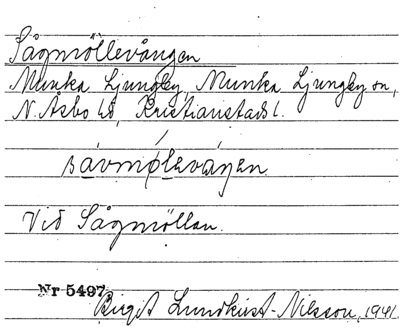 Sågmöllevången
Munka Ljungby, Munka Ljungby sn,
N. Åsbo hd, Kristianstads l.
sávmø̀levàŋen
Vid Sågmöllan.
Nr 5497
Birgit Lundkvist-Nilsson, 1941.